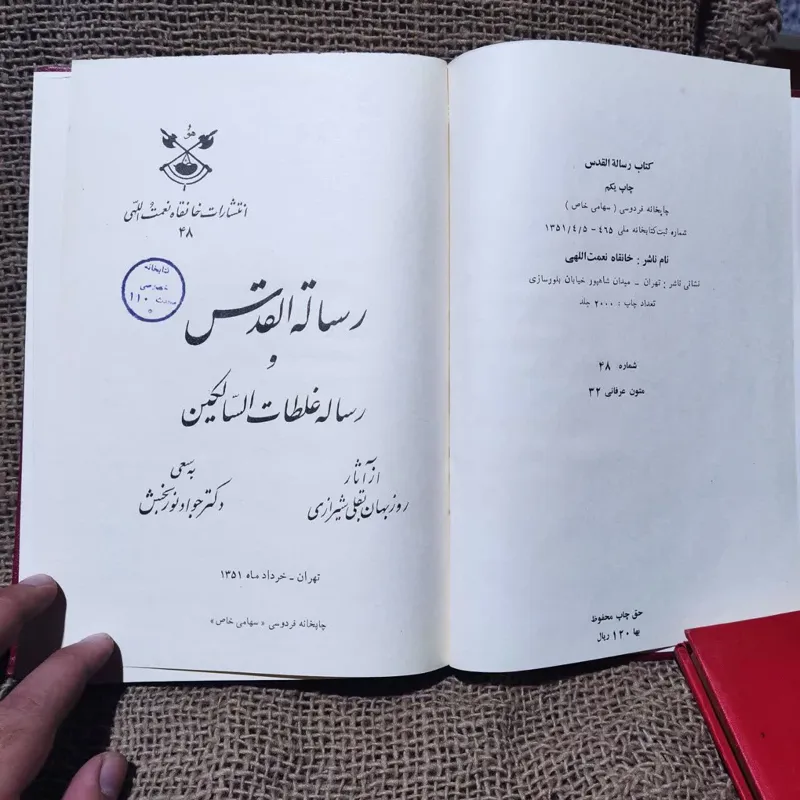 کتاب رسالة القدس
چاپ یکم
چاپخانه فردوسی ( سهامی خاص )
شماره ثبت کتابخانه ملی ۴۶۵ - ۱۳۵۱/۴/۵
نام ناشر : خانقاه نعمت اللهی
نشانی ناشر : تهران - میدان شاهپور خیابان بلورسازی
تعداد چاپ : ۲۰۰۰ جلد
شماره ۴۸
متون عرفانی ۳۲
حق چاپ محفوظ
بها ۱۲۰ ریال
هو
انتشارات خانقاه نعمت اللهی
۴۸
کتابخانه
خصوصی
۱۱۰
رسالة القدس
و
رساله غلطات السالکین
از آثار
روزبهان بقلی شیرازی
به سعی
دکتر جواد نوربخش
تهران - خرداد ماه ۱۳۵۱
چاپخانه فردوسی « سهامی خاص »